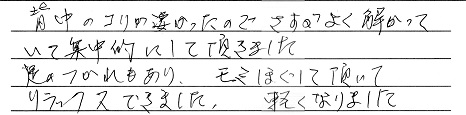 背中のコリが凄かったのでさすがよく解かって
いて集中的にして頂きました
足のつかれもあり、モミほぐして頂いて
リラックスできました。軽くなりました